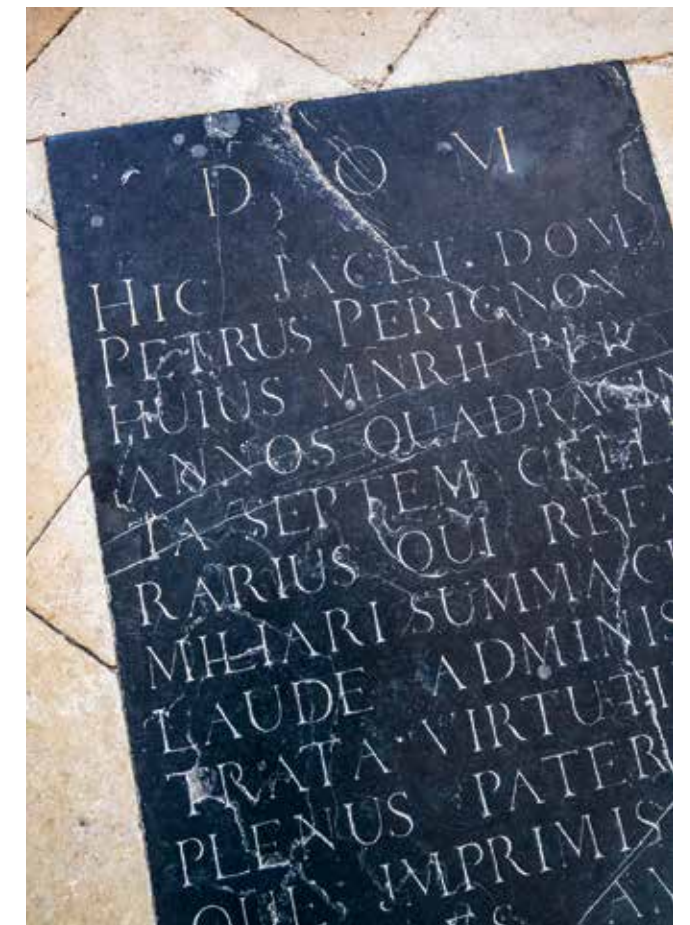 D O M
HIC JACET. DOM
PETRUS PERIGNON
HUIUS MNRII PER
ANNOS QUADRAGIN
TA SEPTEM CELLA
RARIUS QUI REFA
MILIARI SUMMACU
LAUDE ADMINIS
TRATA·VIRTUTI
PLENUS PATER
QUE IMPRIMIS